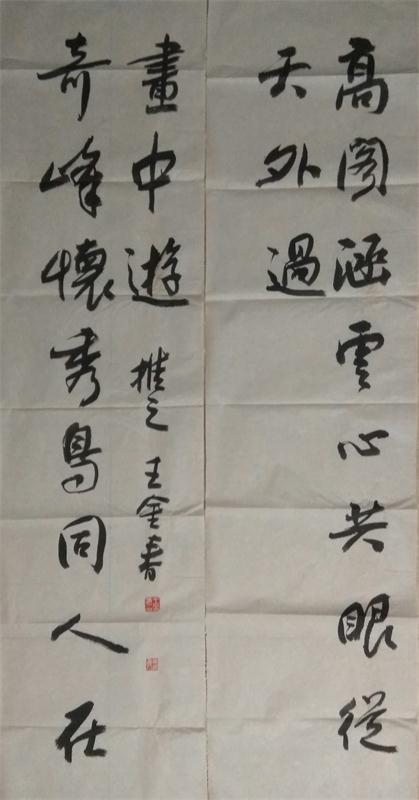 高閣涵雲心共眼從
天外過
奇峰懷秀鳥同人在
畫中遊
推之 王金春